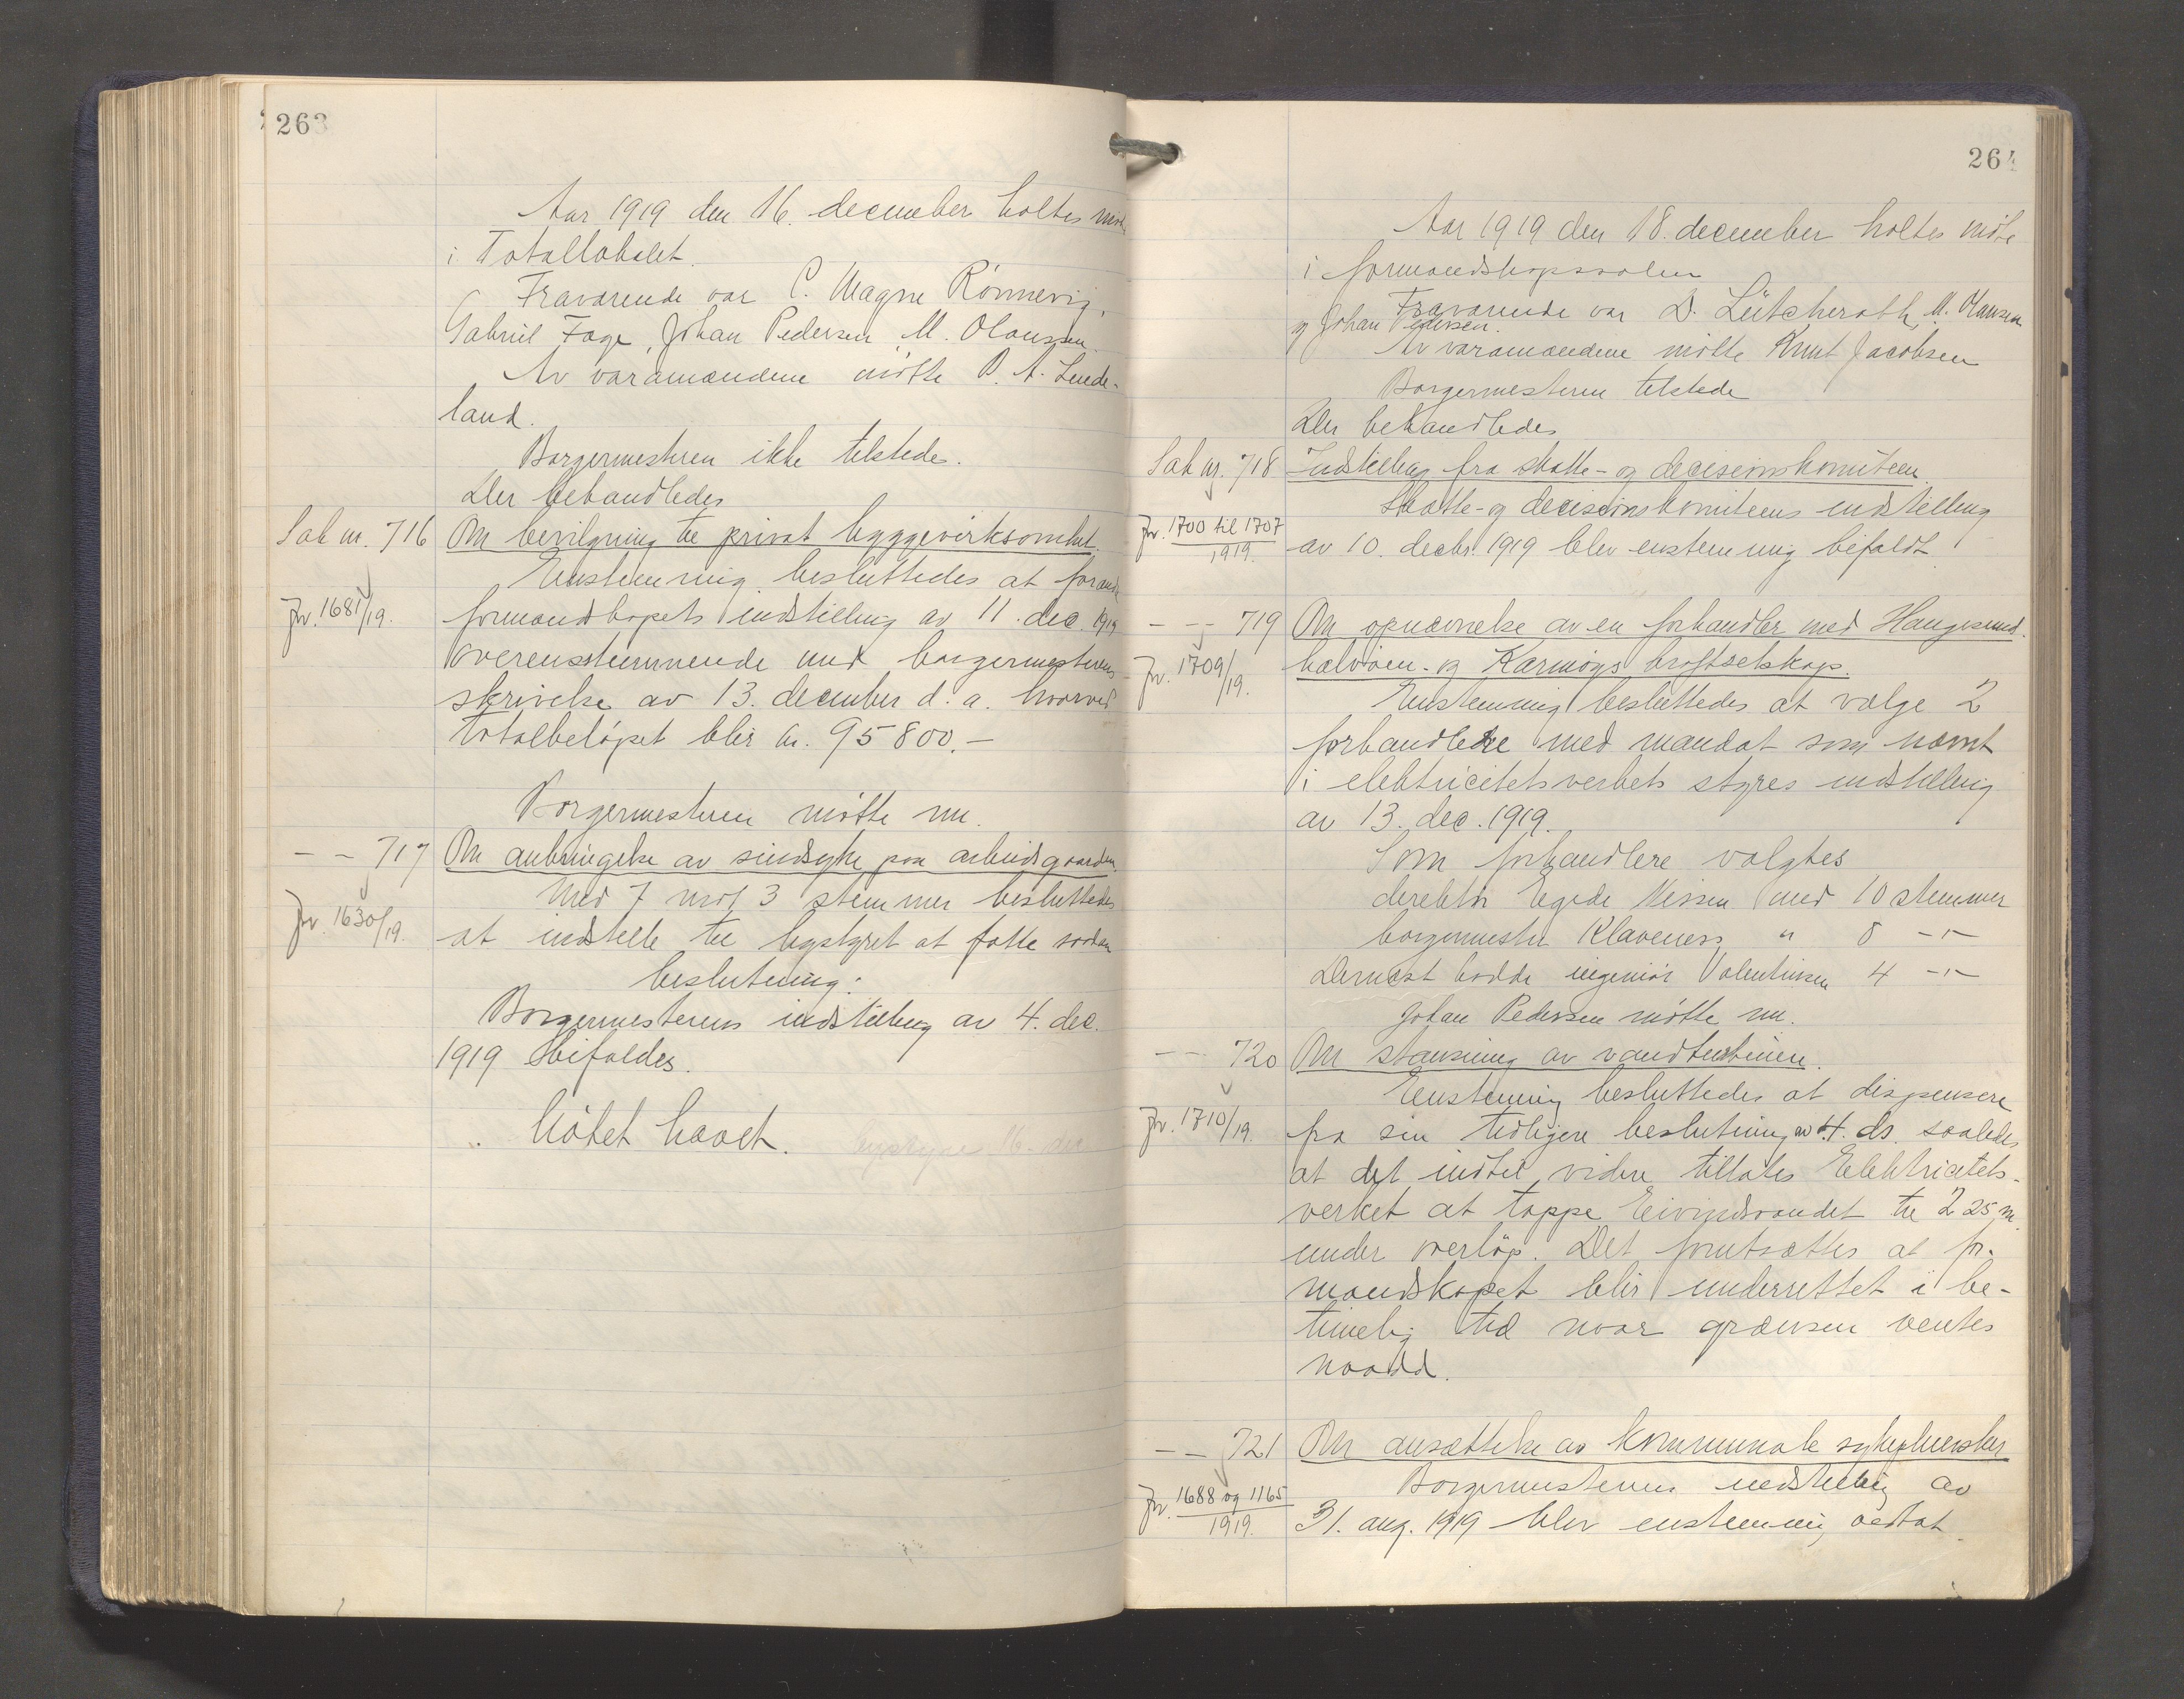 263
Aar 1919 den 16. december holtes møte
i Totallokalet.
Fraværende var C. Magne Rönnevig,
Gabriel Fage, Johan Pedersen, M. Olaussen.
Av varamændene mötte P. A. Linde-
land.
Borgermesteren ikke tilstede.
Der behandledes
Sak nr. 716 Om bevilgning til privat byggevirksomhet.
Enstemmig besluttedes at forandre
Jnr. 1681/19. formandskapets indstilling av 11. dec. 1919
overensstemmende med borgermesterens
skrivelse av 13. december d. a. hvorved
totalbelöpet blir kr. 95 800.-
Borgermesteren mötte nu.
— - 717 Om anbringelse av sindssyke paa arbeidsgaarden.
Med 7 mot 3 stemmer besluttedes
Jnr. 1630/19. at indstille til bystyret at fatte saadan
beslutning:
Borgermesterens indstilling av 4. dec.
1919 bifaldes.
Mötet hævet.
264
Aar 1919 den 18. december holtes möte
i formandskapssalen
Fraværende var D. Lütcherath, M. Olausen
og Johan Pedersen.
Av varamændene mötte Knut Jacobsen
Borgermesteren tilstede
Der behandledes
Sak nr. 718 Indstilling fra skatte- og decisionskomiteen.
Skatte- og decisionskomiteens indstilling
Jnr. 1700 til 1707/1919. av 10. decbr. 1919 blev enstemmig bifaldt.
— - 719 Om opnævnelse av en forhandler med Haugesund-
Jnr. 1709/19. halvöen- og Karmöys kraftselskap.
Enstemmig besluttedes at vælge 2
forhandlere med mandat som nævnt
i elektricitetsverkets styres indstilling
av 13. dec. 1919.
Som forhandlere valgtes
direktör Egede Nissen med 10 stemmer
borgermester Klaveness " 8 -"-
Dernæst hadde ingeniör Valentinsen 4 -"-
Johan Pedersen mötte nu.
— - 720 Om stansning av vandturbinen.
Enstemmig besluttedes at dispensere
Jnr. 1710/19. fra sin tidligere beslutning av 4. ds. saaledes
at det indtil videre tillates Elektricitets-
verket at tappe Eivindsvandet til 2 25 m.
under overlöp. Det forutsættes at for-
mandskapet blir underrettet i be-
timelig tid naar grænsen ventes
naadd.
— - 721 Om ansættelse av kommunale sykepleiersker
Borgermesterens indstilling av
Jnr. 1688 og 1165/1919. 31. aug. 1919 blev enstemmig vedtat.